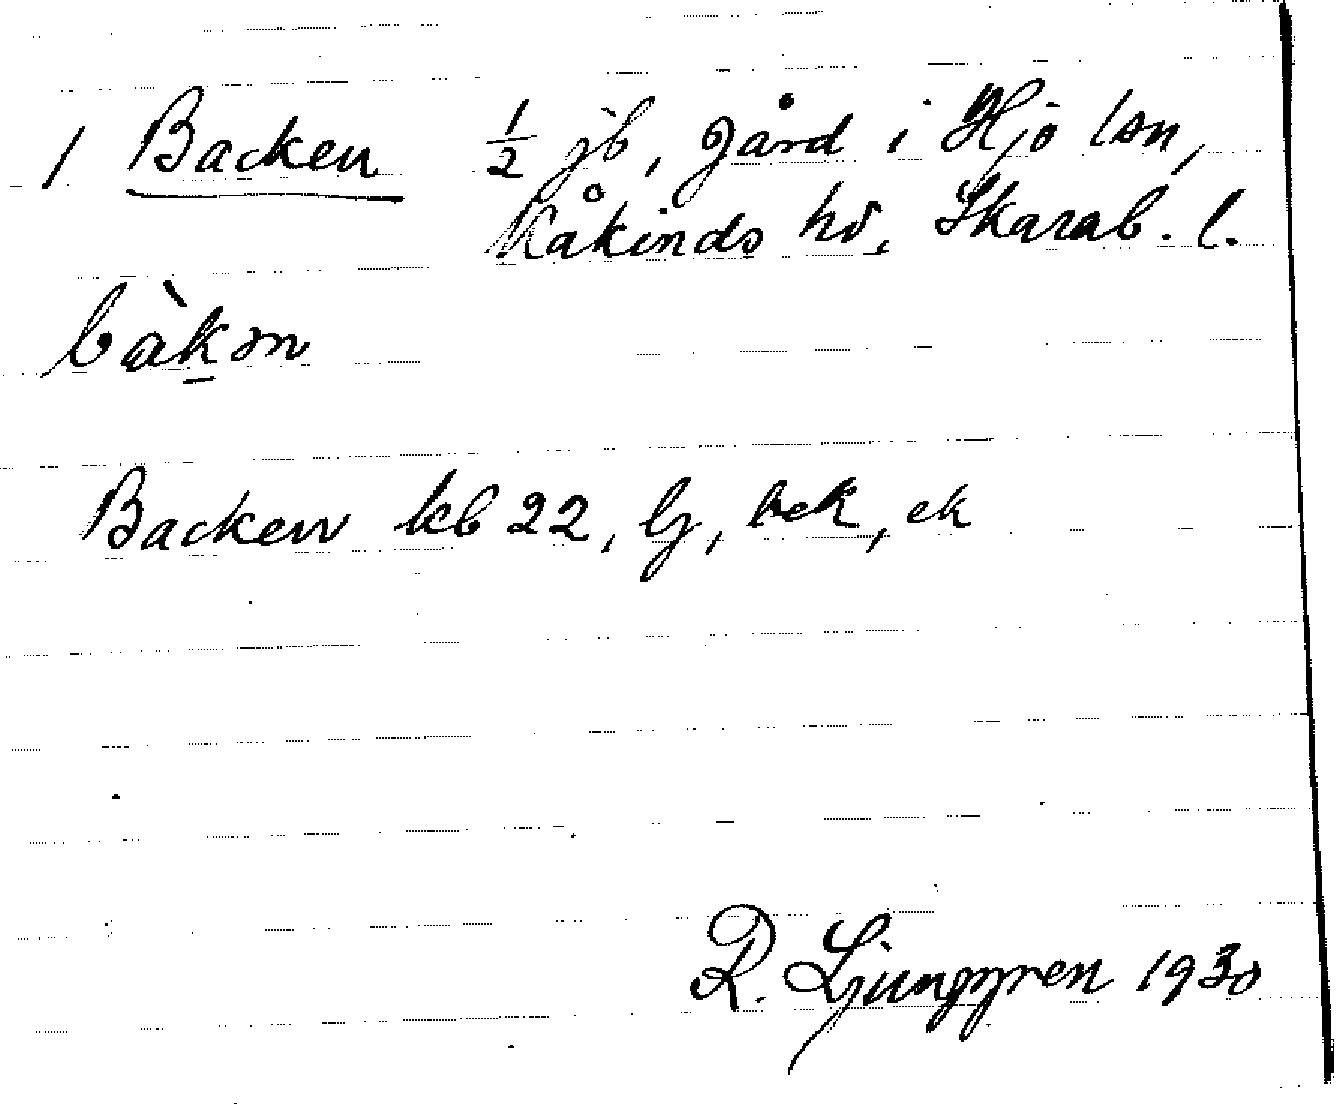 1 Backen ½ jb, gård i Hjo lsn,
Kåkinds hd, Skarab. l.
bàkən
Backen kb 22, lj, bek, ek
R. Ljunggren 1930